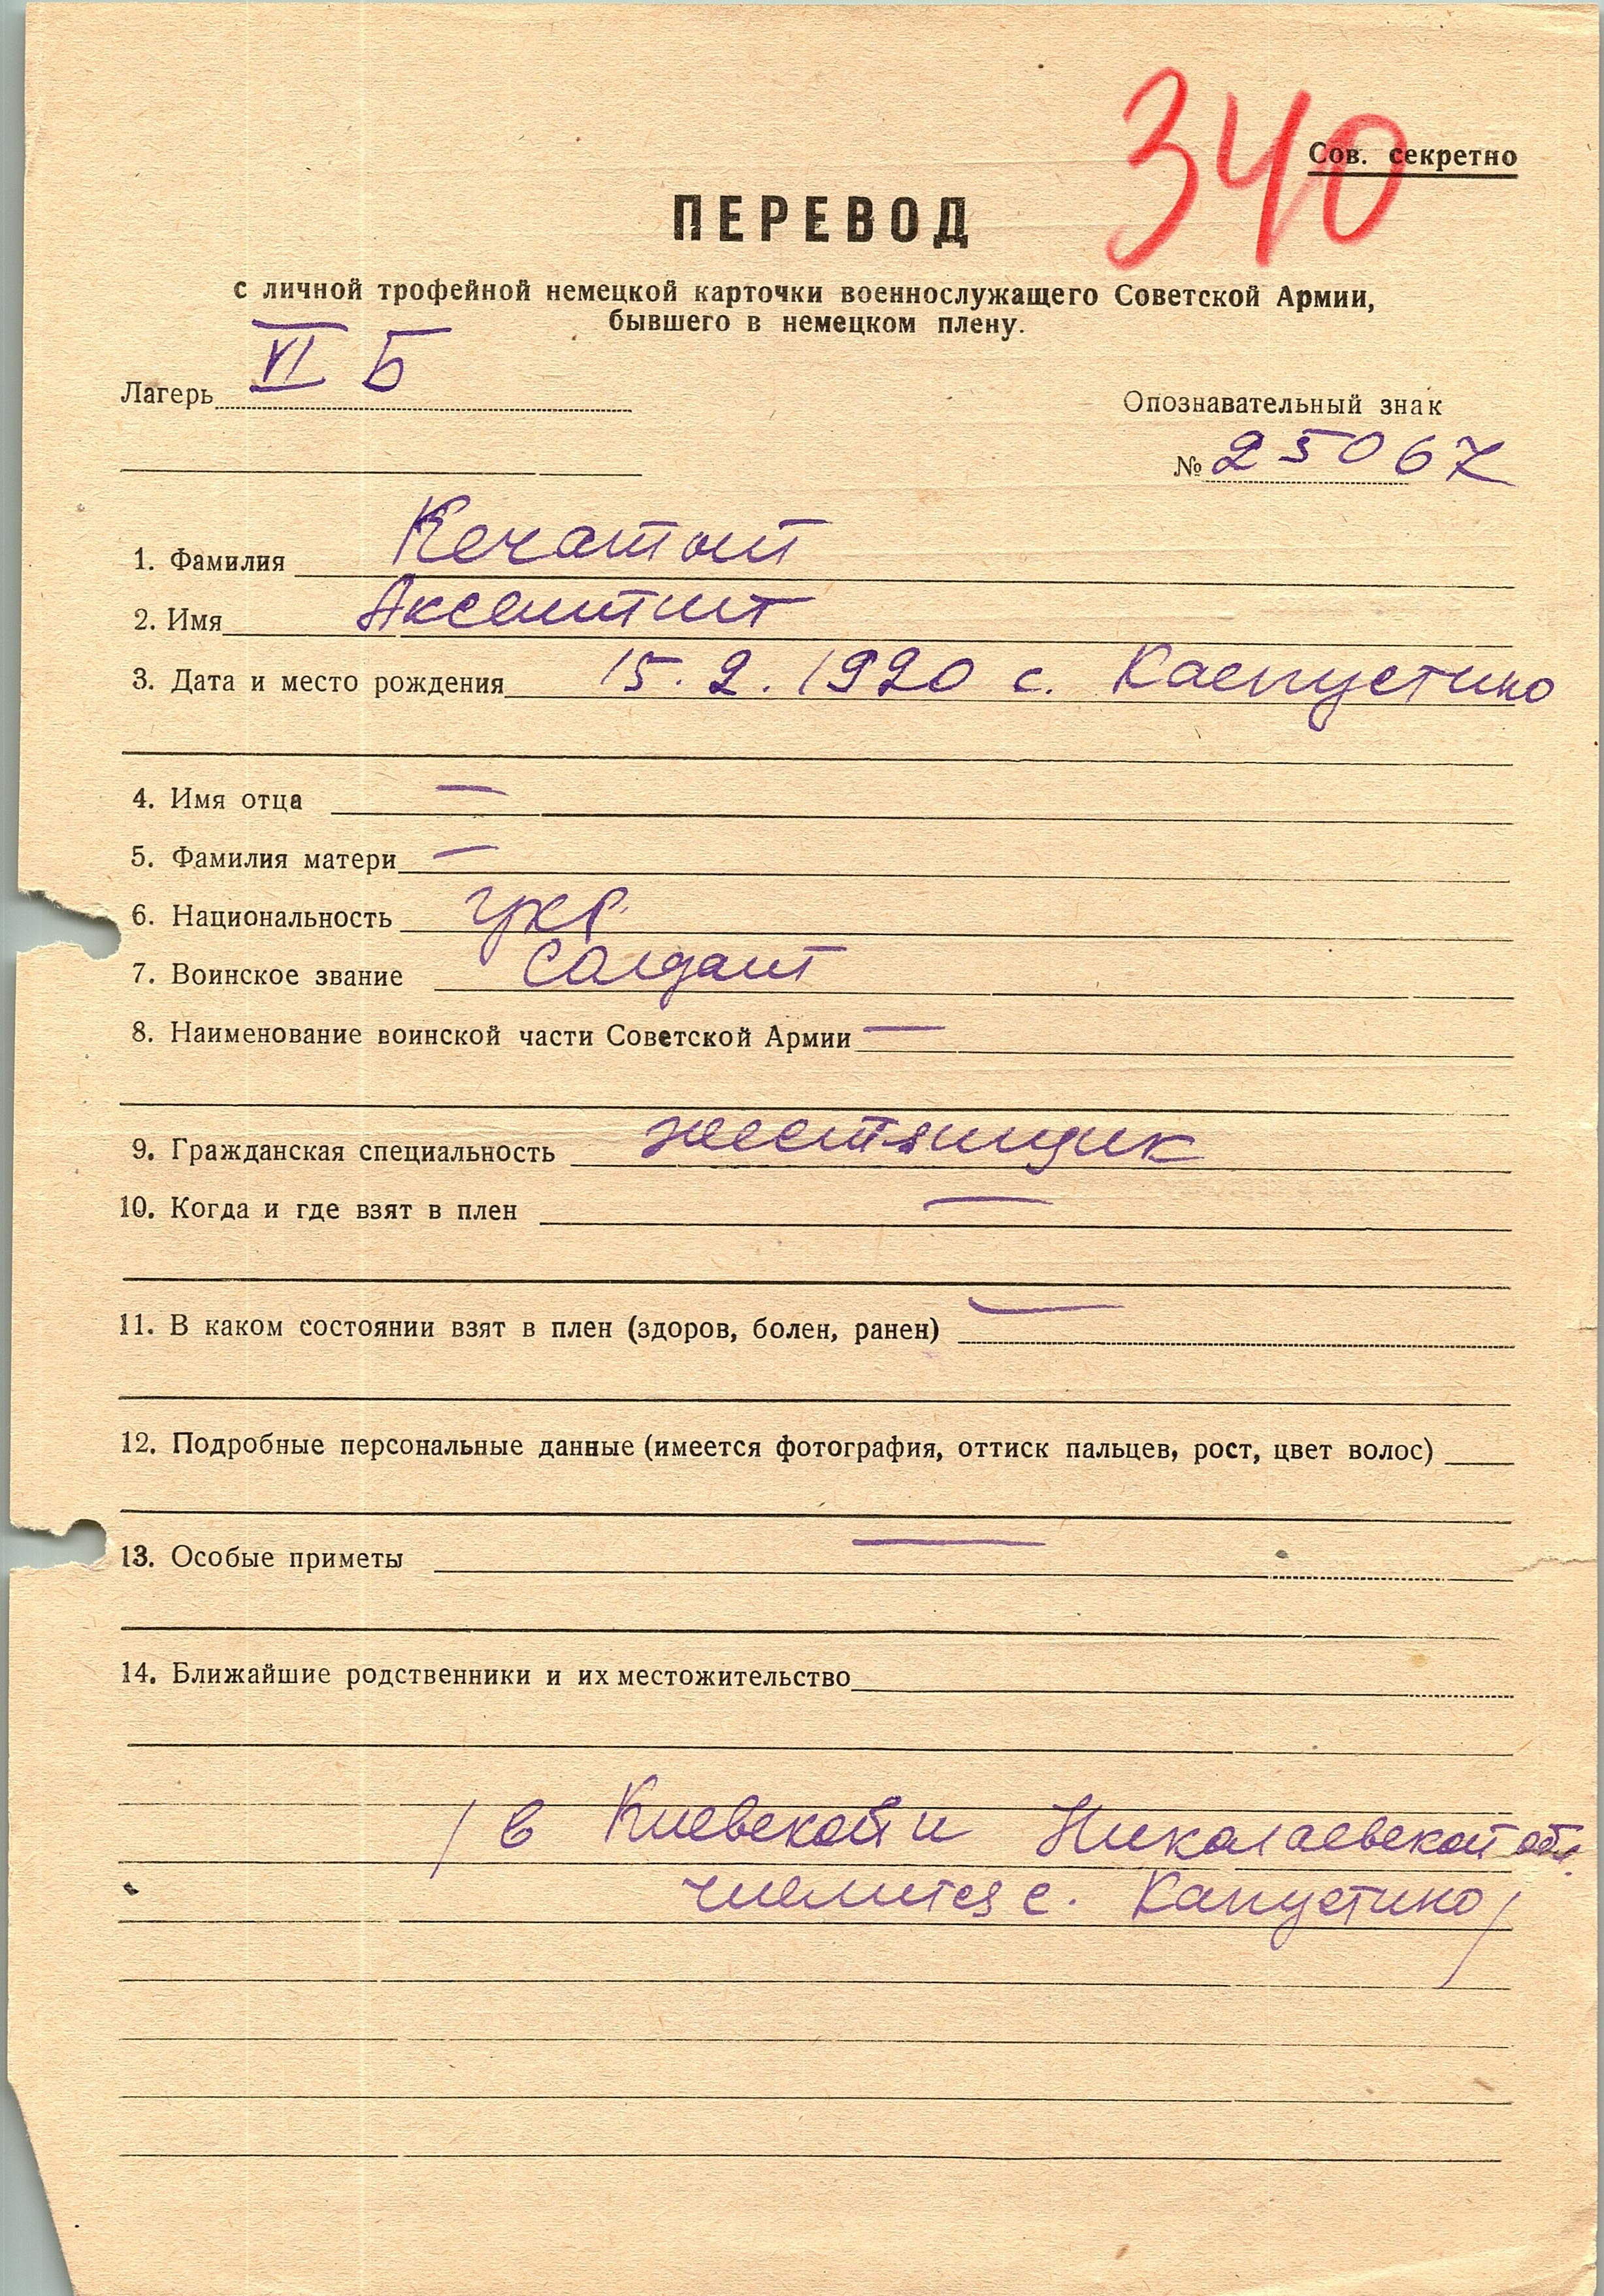 340
Сов. секретно
ПЕРЕВОД
с личной трофейной немецкой карточки военнослужащего Советской Армии,
бывшего в немецком плену.
Лагерь VI Б
Опознавательный знак
№ 25067
1. Фамилия
2. Имя
3. Дата и место рождения 15.2.1920 с. Каепустино
4. Имя отца —
5. Фамилия матери —
6. Национальность укр.
7. Воинское звание Солдат
8. Наименование воинской части Советской Армии —
9. Гражданская специальность жестянщик
10. Когда и где взят в плен —
11. В каком состоянии взят в плен (здоров, болен, ранен) —
12. Подробные персональные данные (имеется фотография, оттиск пальцев, рост, цвет волос)
13. Особые приметы —
14. Ближайшие родственники и их местожительство
/ в Киевской и Николаевской обл.
имеется с. Капустино /